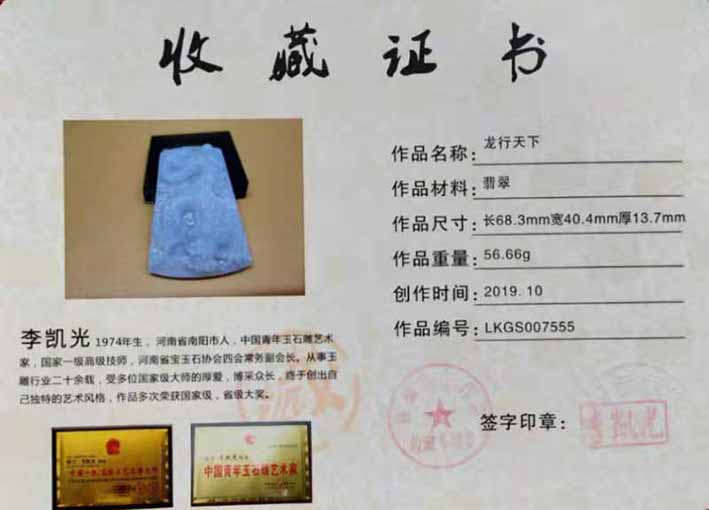 收藏证书
作品名称： 龙行天下
作品材料： 翡翠
作品尺寸： 长68.3mm宽40.4mm厚13.7mm
作品重量： 56.66g
创作时间： 2019.10
作品编号： LKGS007555
李凯光 1974年生，河南省南阳市人，中国青年玉石雕艺术
家，国家一级高级技师，河南省宝玉石协会四会常务副会长。从事玉
雕行业二十余载，受多位国家级大师的厚爱，博采众长，终于创出自
己独特的艺术风格，作品多次荣获国家级，省级大奖。
签字印章：
李凯光
中国青年玉石雕艺术家